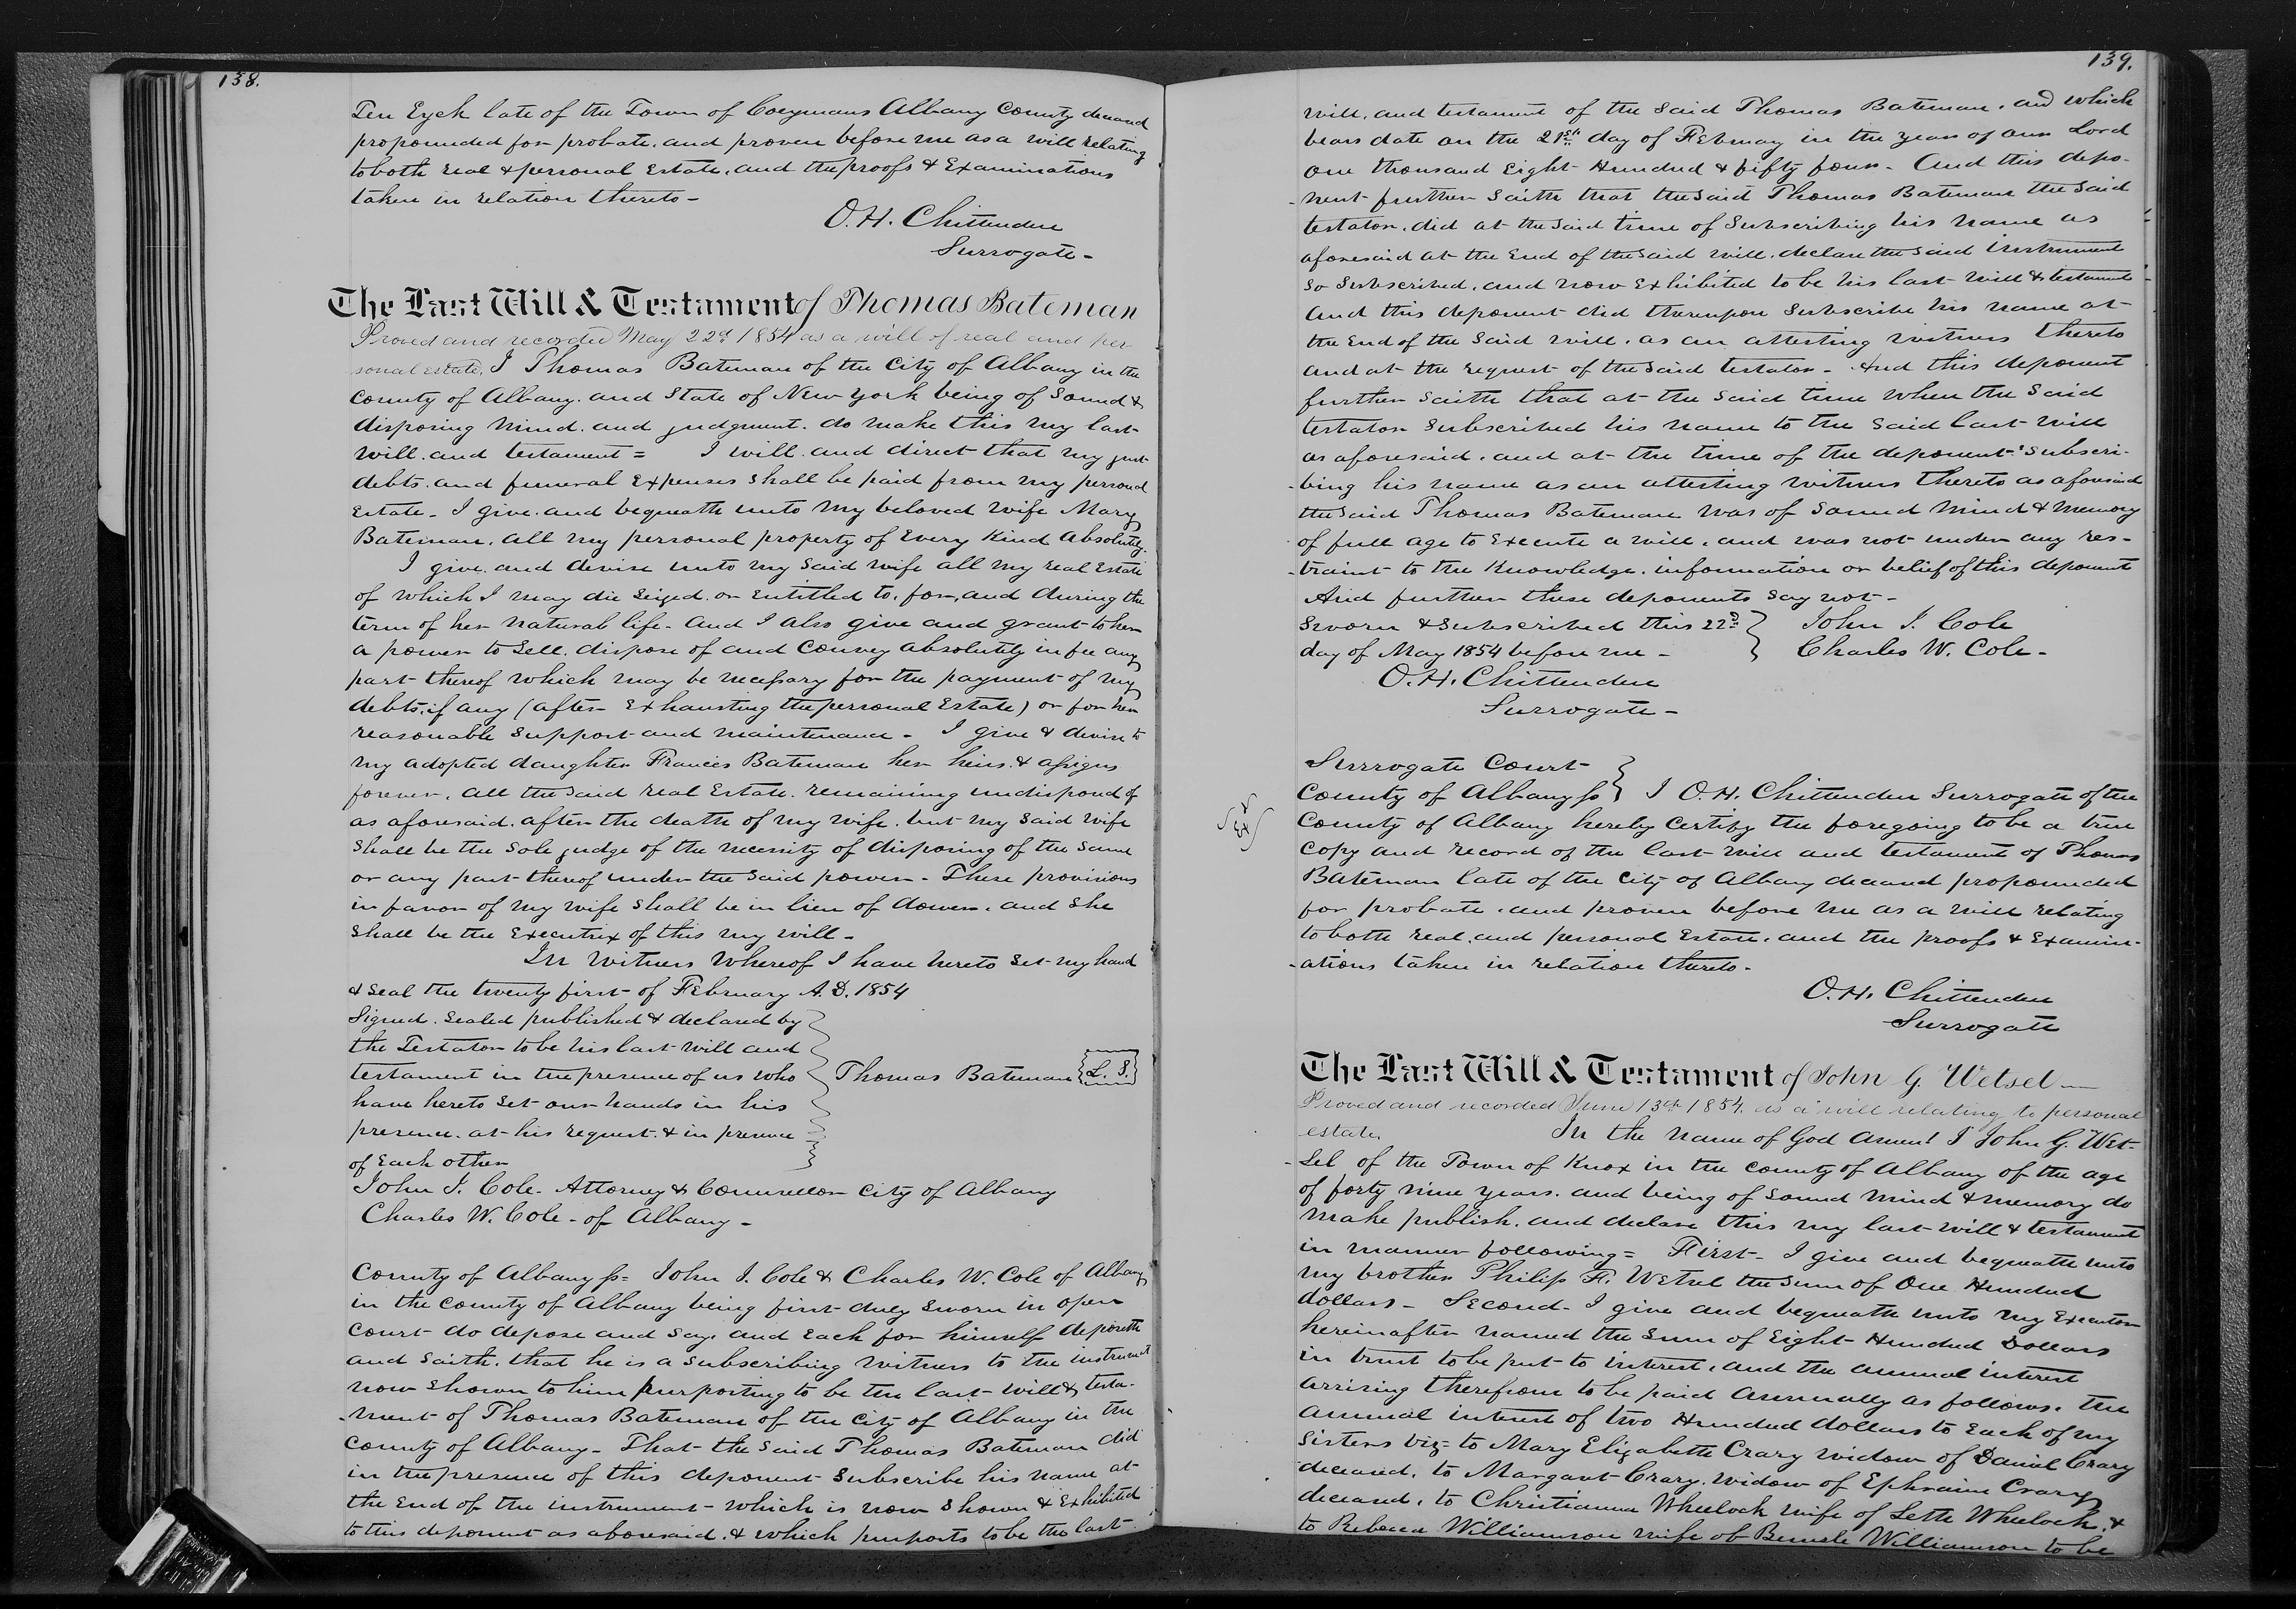 138.
Ten Eyck late of the Town of Coeymans Albany County deceased
propounded for probate. and proven before me as a will relating
to both real & personal Estate. and the proofs & Examinations
taken in relation thereto-
O. H. Chittenden
Surrogate-
The Last Will & Testament of Thomas Bateman
Proved and recorded May 22d 1854 as a will of real and per
sonal estate. I Thomas Bateman of the City of Albany in the
County of Albany. and State of New York being of Sound &
disposing mind. and judgment. do make this my last
will. and testament = I will. and direct that my just
debts. and funeral Expenses shall be paid from my personal
Estate- I give. and bequeath unto my beloved wife Mary
Bateman. all my personal property of Every Kind Absolutely.
I give. and devise unto my said wife all my real Estate
of which I may die Seized. or Entitled to. for, and during the
term of her natural life- And I also give and grant to her
a power to Sell. dispose of and Convey absolutely in fee any
part thereof which may be necessary for the payment of my
debts. if any (after Exhausting the personal Estate) or for her
reasonable Support and maintenance- I give & devise to
my adopted daughter Frances Bateman her heirs. & assigns
forever. all the said real Estate. remaining undisposed of
as aforesaid. after the death of my wife. but my said wife
Shall be the Sole judge of the necessity of disposing of the same
or any part thereof under the said power- These provisions
in favor of my wife shall be in lieu of dower. and she
shall be the Executrix of this my will-
In Witness Whereof I have hereto Set my hand
& Seal the twenty first of February A.D. 1854
Signed. Sealed published & declared by
the Testator to be his last will and
testament in the presence of us who Thomas Bateman L. S.
have hereto Set our hands in his
presence. at his request. & in presence
of Each other
John J. Cole- Attorney & Counsellor City of Albany
Charles W. Cole- of Albany-
County of Albany ss= John J. Cole & Charles W. Cole of Albany
in the County of Albany being first duly Sworn in open
Court do depose and say. and Each for himself deposeth
and Saith. that he is a subscribing witness to the instrument
now shown to him purporting to be the last will & testa-
-ment of Thomas Bateman of the City of Albany in the
County of Albany- That the said Thomas Bateman did
in the presence of this deponent Subscribe his name at
the End of the instrument- which is now Shown & Exhibited
to this deponent as aforesaid. & which purports to be the last
139.
will. and testament of the said Thomas Bateman. and which
bears date on the 21st day of February in the year of our Lord
one thousand Eight Hundred & fifty four- And this depo-
-nent further Saith that the said Thomas Bateman the said
testator. did at the said time of Subscribing his name as
aforesaid at the End of the said will. declare the said Instrument
So Subscribed. and now Exhibited to be his last will & testament
And this deponent did thereupon Subscribe his name at
the End of the said will. as an attesting witness thereto
and at the request of the said testator- And this deponent
further Saith that at the said time when the said
testator Subscribed his name to the said last will
as aforesaid. and at the time of the deponent's subscri-
-bing his name as an attesting witness thereto as aforesaid
the said Thomas Bateman was of Sound mind & memory
of full age to Execute a will. and was not under any res-
-traint to the Knowledge. information or belief of this deponent
And further these deponents say not-
Sworn & Subscribed this 22d John J. Cole
day of May 1854 before me- Charles W. Cole-
O. H. Chittenden
Surrogate-
Surrogate Court
County of Albany ss I O. H. Chittenden Surrogate of the
County of Albany hereby Certify the foregoing to be a true
Copy and record of the last will and testament of Thomas
Bateman late of the City of Albany deceased propounded
for probate. and proven before me as a will relating
to both real. and personal Estate. and the proofs & Examin-
-ations taken in relation thereto-
O. H. Chittenden
Surrogate
The Last Will & Testament of John G. Wetsel
Proved and recorded June 13th 1854. as a will relating to personal
estate. In the name of God Amen! I John G. Wet-
-sel of the Town of Knox in the County of Albany of the age
of forty nine years. and being of Sound mind & memory do
make publish. and declare this my last will & testament
in manner following= First- I give and bequeath unto
my brother Philip F. Wetsel the Sum of One Hundred
dollars- Second- I give and bequeath unto my Executor
hereinafter named the Sum of Eight Hundred Dollars
in trust to be put to interest, and the annual interest
arriving therefrom to be paid annually as follows. the
annual interest of two Hundred dollars to Each of my
Sisters viz- to Mary Elizabeth Crary widow of Daniel Crary
deceased. to Margaret Crary. widow of Ephraim Crary
deceased. to Christianna Wheelock wife of Seth Wheelock. &
to Rebecca Williamson wife of Williamson to be